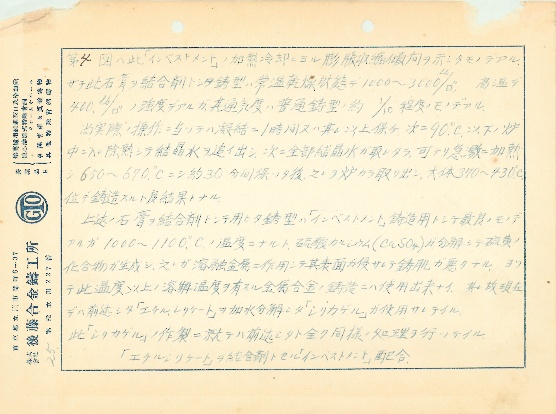 第4図ハ此「インベストメント」ノ加熱冷却ニヨル膨脹収縮傾向ヲ示シタモノデアル。
サテ此石膏ヲ結合剤トシタ鋳型ハ常温乾燥状態デ1000〜3000 高温デ
400 ノ強度デアルガ、其通気度ハ普通鋳型ノ約 程度ノモノデアル。
尚実際ノ操作ニ当ツテハ凝結ニ1時間又ハ其レ以上保チ次ニ90℃以下ノ炉
中ニ入レ除熱シテ結晶水ヲ追イ出シ、次ニ全部結晶水ガ取レタラ、可ナリ急激ニ加熱
シ650〜670℃ニシ約30分間保ツタ後、ソレヲ炉カラ取リ出シ、大体370〜430℃
位デ鋳造スルト良結果トナル。
上述ノ石膏ヲ結合剤トシテ用ヒタ鋳型ハ「インベストメント」鋳造用トシテ最良ノモノデ
アルガ1000〜1100℃ノ温度ニナルト、硫酸カルシウム(CaSO4)ガ分解シテ硫黄ノ
化合物ガ生成シ、之ガ溶融金属ニ作用シテ其表面ヲ侵サレテ鋳肌ガ悪クナル。ヨツ
テ此温度以上ノ溶解温度ヲ有スル金属合金ノ鋳造ニハ使用出来ナイ。
ハ前述シタ「エチルシリケート」ヲ加水分解シタ「シリカゲル」ガ使用サレテイル。
此「シリカゲル」ノ作製ニ就テハ前述シタト全ク同様ノ処理ヲ行ツテイル。
「エチルシリケート」ヲ結合剤トセル「インベストメント」ノ配合.
GIO
後藤合金鋳工所
25